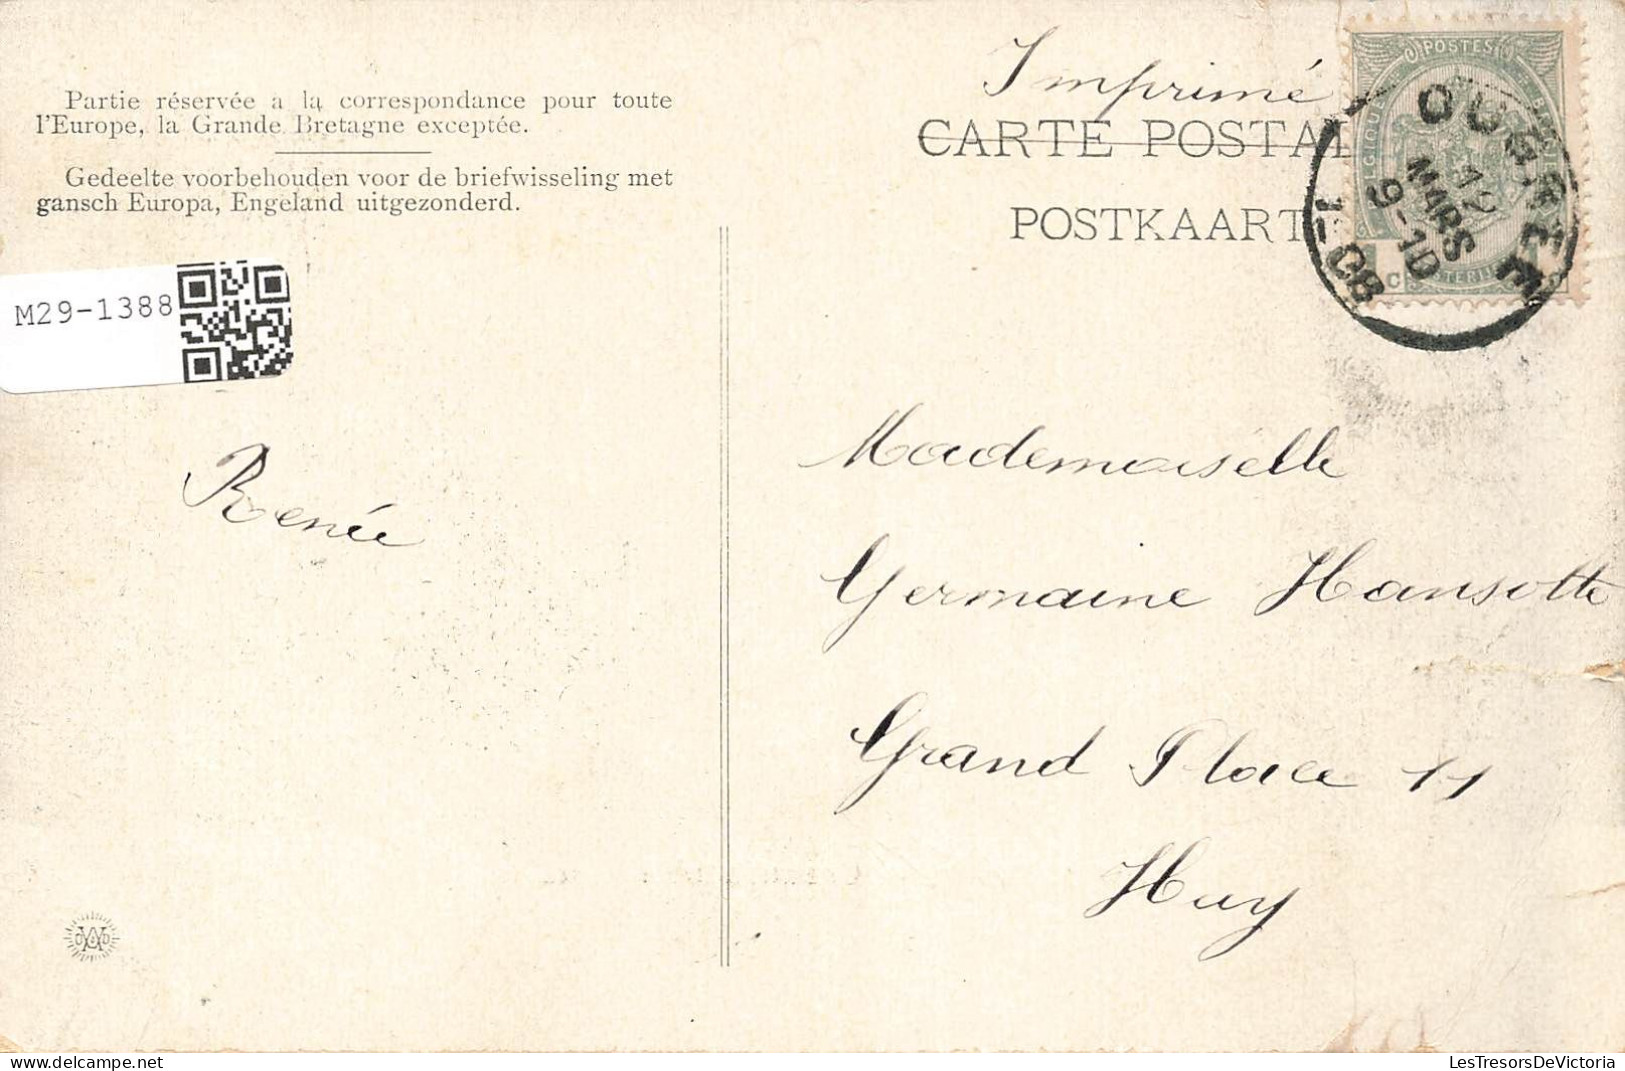 Partie réservée a la correspondance pour toute
l'Europe, la Grande Bretagne exceptée.
Gedeelte voorbehouden voor de briefwisseling met
gansch Europa, Engeland uitgezonderd.
M29-1388
Renée
Imprimé
CARTE POSTAL
POSTKAART
POSTES
OUGRÉE
12
MARS
9-10
08
Mademoiselle
Germaine Hansotte
Grand Place 11
Huy
LesTresorsDeVictoria